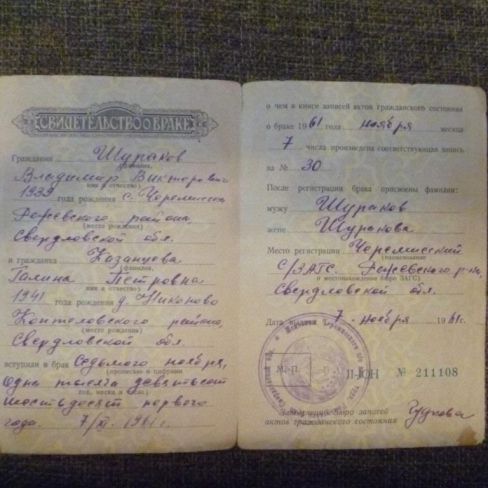 СВИДЕТЕЛЬСТВО О БРАКЕ
Гражданин Шураков
фамилия,
Владимир Викторович
имя и отчество)
1939 года рождения с. Черемисска
Режевского района,
(место рождения)
Свердловской обл.
и гражданка Казанцева
фамилия,
Галина Петровна
имя и отчество)
1941 года рождения д. Никоново
Коптеловского района,
(место рождения)
Свердловской обл.
вступили в брак Седьмого ноября,
(прописью и цифрами
Одна тысяча девятьсот
год, месяц и число)
шестьдесят первого
года. 7/XI. 1961г.
о чем в книге записей актов гражданского состояния
о браке 1961 года ноября месяца
7 числа произведена соответствующая запись
за № 30
После регистрации брака присвоены фамилии:
мужу Шураков
жене Шуракова
Место регистрации Черемисский
(наименование
С/ЗАГС. Режевского р-на,
и местонахождение бюро ЗАГС)
Свердловской обл.
Дата 7 - ноября 1961г.
М. П.
II-ЮН № 211108
Заведующий бюро записей
актов гражданского состояния